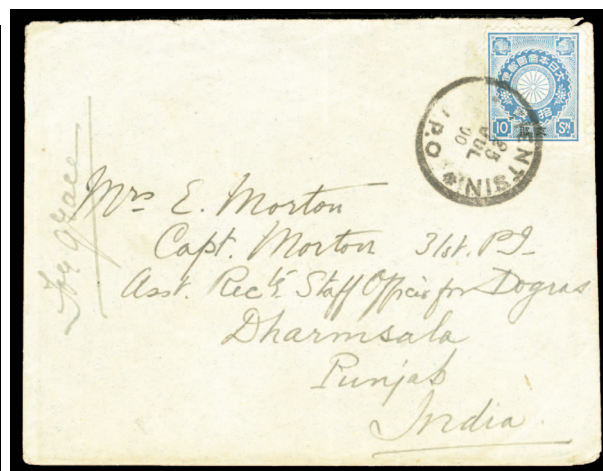 大日本帝國郵便
10 Sn.
TIENTSIN
25
JUL
00
I.P.O
Mrs E. Morton
Capt. Morton 31st. P.I.
Asst. Rectg. Staff Officer for Dogras
Dharmsala
Punjab
India.